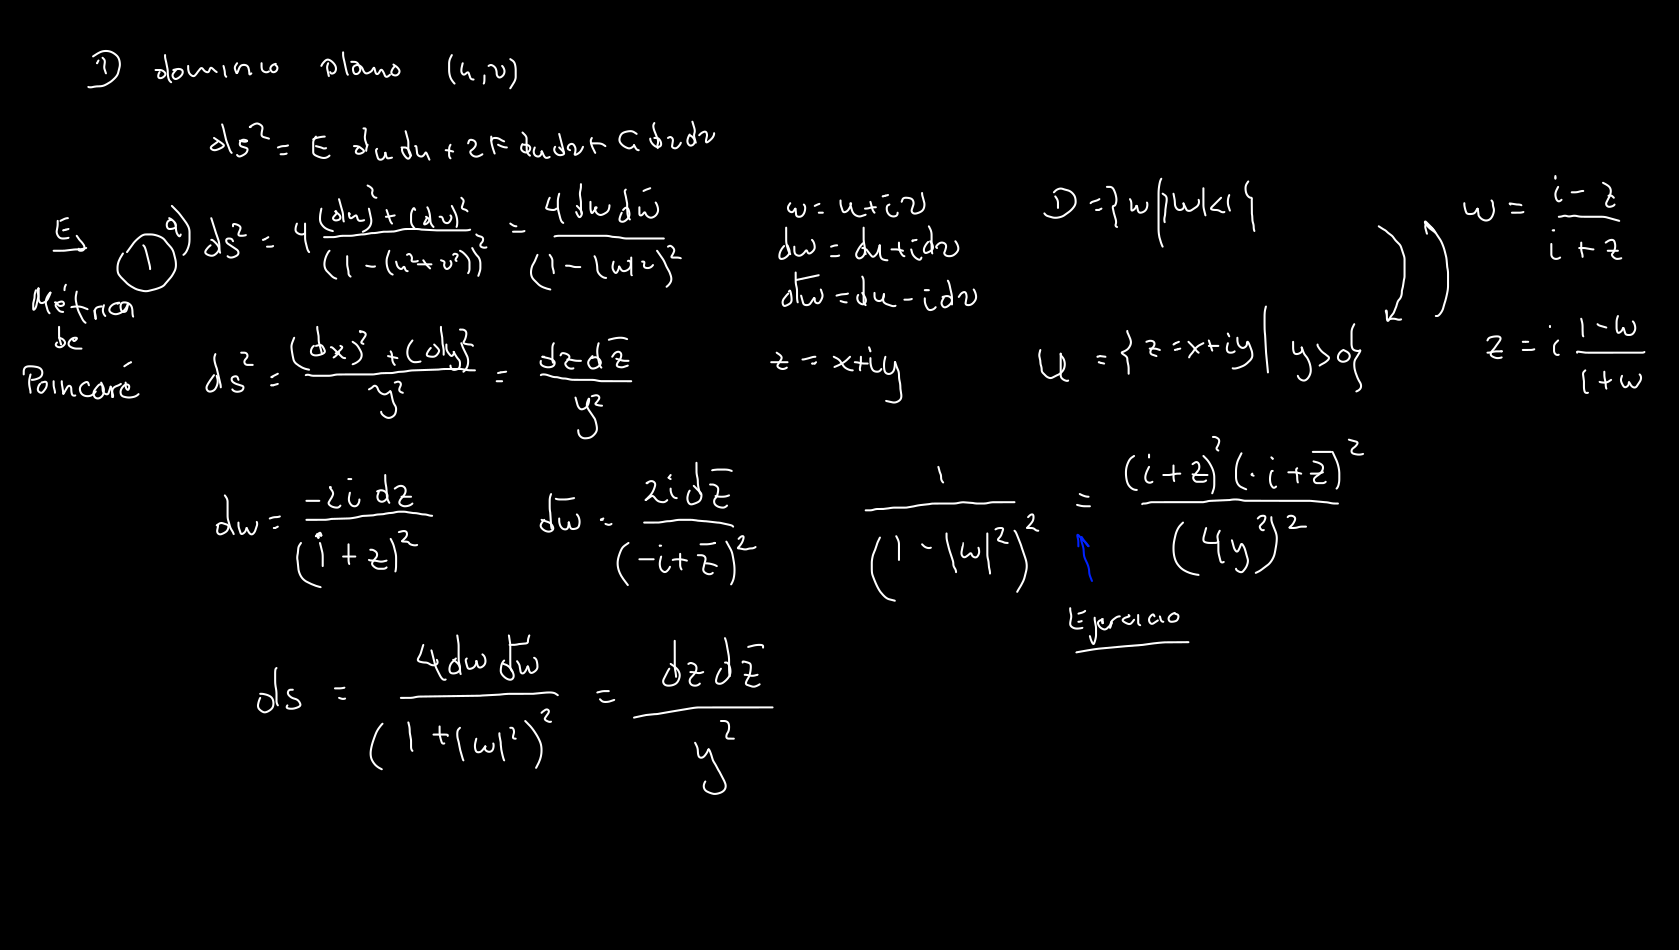 D dominio plano (u,v)
ds² = E du du + 2F du dv + G dv dv
Ej
Métrica de Poincaré
1 a) ds² = 4 ((du)² + (dv)²)/(1 - (u²+v²))² = 4 dw dw̄/(1 - |w|²)²
w = u + iv
dw = du + i dv
dw̄ = du - i dv
D = {w | |w|<1}
w = (i - z)/(i + z)
ds² = ((dx)² + (dy)²)/y² = dz dz̄/y²
z = x + iy
U = {z = x+iy | y>0}
z = i (1-w)/(1+w)
dw = -2i dz/(i + z)²
dw̄ = 2i dz̄/(-i + z̄)²
1/(1 - |w|²)² = (i+z)² (-i+z̄)²/(4y²)²
Ejercicio
ds = 4 dw dw̄/(1 + |w|²)² = dz dz̄/y²